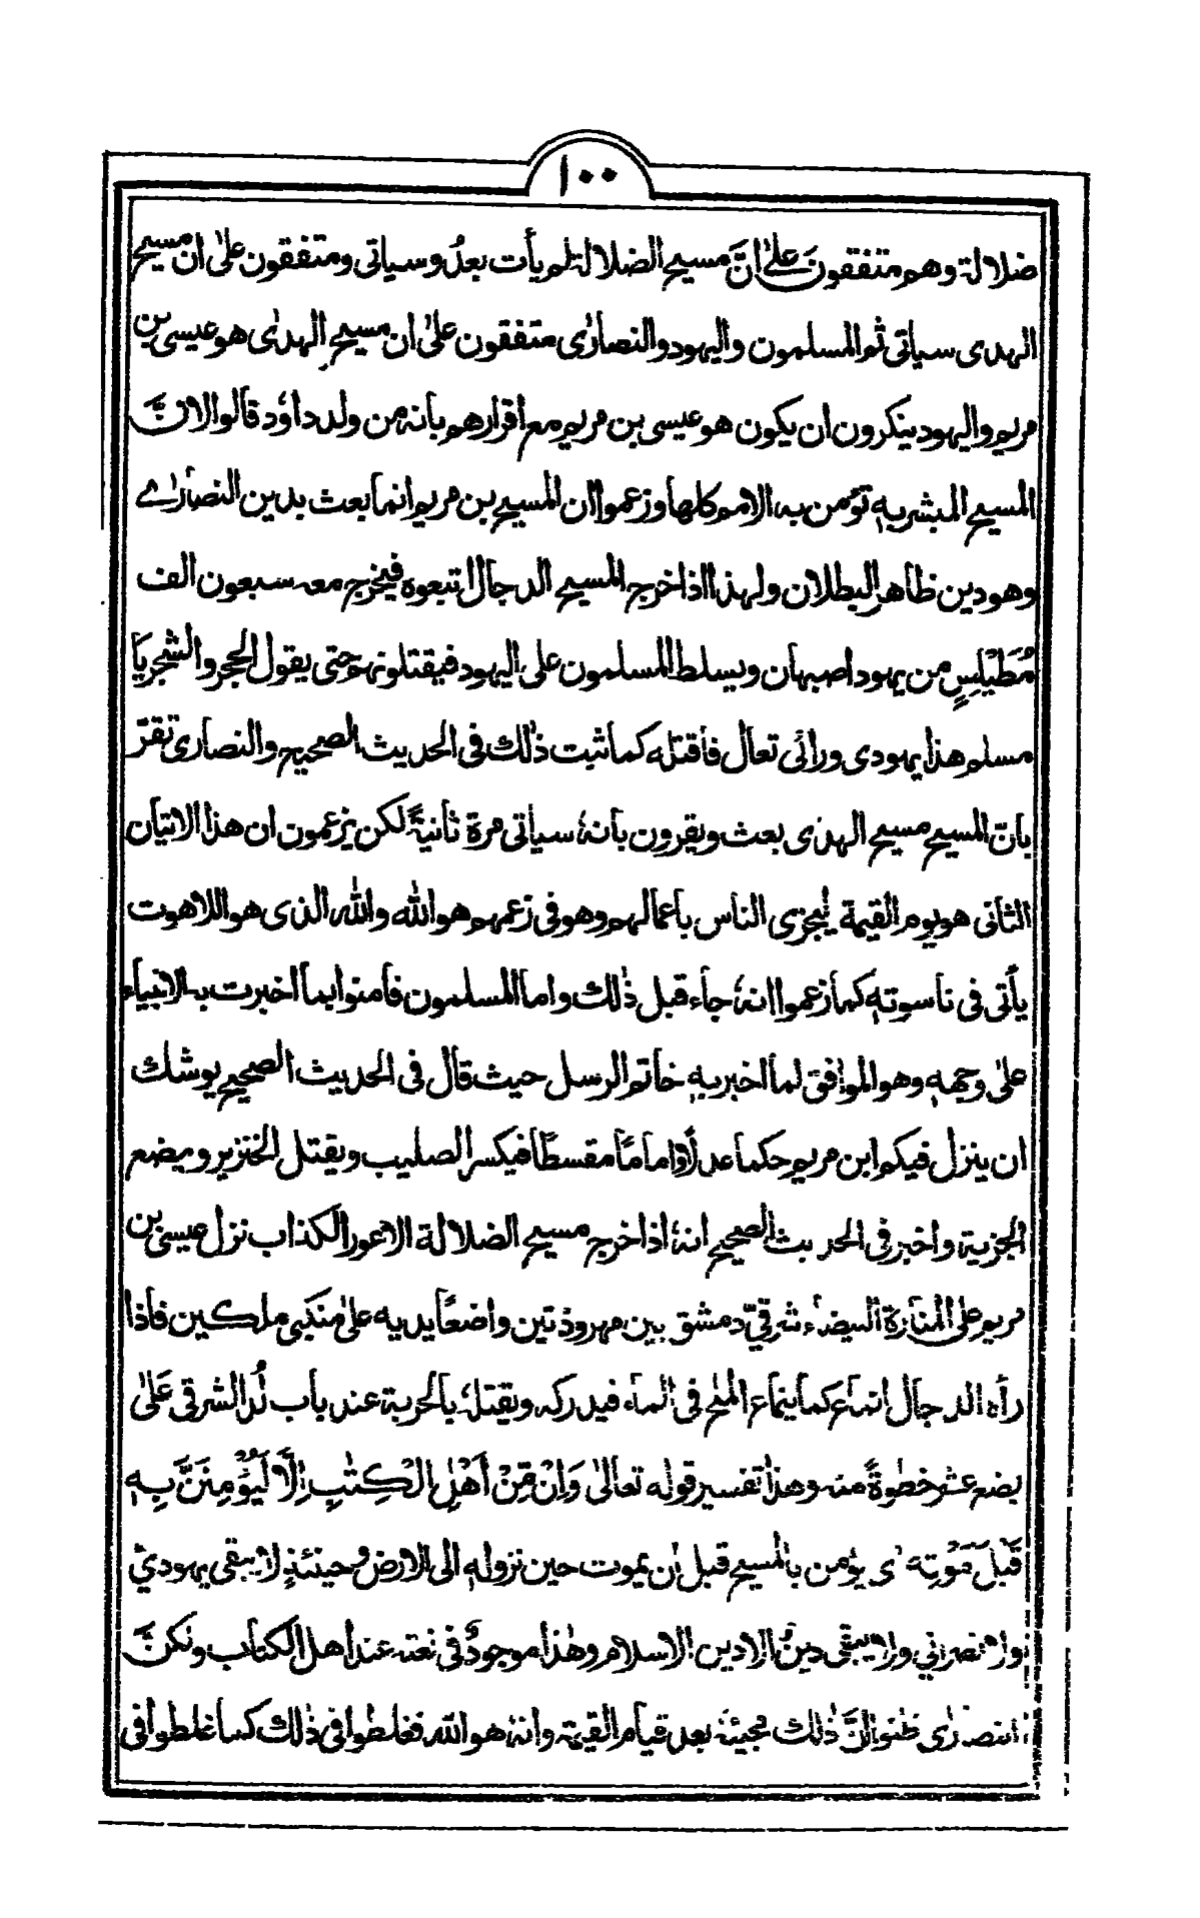 ١٠٠
ضلالة وهم متفقون على انَّ مسيح الضلالة لم يأت بعدُ وسياتى ومتفقون علىٰ ان مسيح
الهدى سياتى ثم المسلمون واليهود والنصارٰى متفقون علىٰ ان مسيح الهدٰى هو عيسى بن
مريم واليهود ينكرون ان يكون هو عيسى بن مريم مع اقرارهم بانه من ولد داوٗد قالوا لانَّ
المسيح المبشر به تؤمن به الامم كلها وزعموا ان المسيح بن مريم انما بعث بدين النصارٰے
وهو دين ظاهر البطلان ولهذا اذا خرج المسيح الدجال اتبعوه فيخرج معه سبعون الف
مُطَيْلِسٍ من يهود اصبهان ويسلط المسلمون على اليهود فيقتلونهم حتى يقول الحجر والشجر يا
مسلم هذا يهودى ورائى تعال فاقتله كما ثبت ذٰلك فى الحديث الصحيح والنصارى تقرّ
بانّ المسيح مسيح الهدٰى بعث ويقرون بانهٗ سياتى مرة ثانيةً لكن يزعمون ان هذا الاتيان
الثانى هو يوم القيمة ليجزى الناس باعمالهم وهو فى زعمهم هو الله والله الذى هو اللاهوت
يأتى فى ناسوتهٖ كما زعموا انهٗ جاء قبل ذٰلك واما المسلمون فامنوا بما اخبرت به الانبياء
علىٰ وجههٖ وهو الموافق لما اخبر بهٖ خاتم الرسل حيث قال فى الحديث الصحيح يوشك
ان ينزل فيكم ابن مريم حكما عدلًا واماماً مقسطاً فيكسر الصليب ويقتل الخنزير ويضع
الجزية واخبر فى الحديث الصحيح انهٗ اذا خرج مسيح الضلالة الاعور الكذاب نزل عيسى بن
مريم على المنارة البيضاء شرقيّ دمشق بين مهروذتين واضعاً يديه علىٰ منكبى ملكين فاذا
رأه الدجال انماع كما ينماع الملح فى الماء فيدركه ويقتلهٗ بالحربة عند باب لُد الشرقى عَلىٰ
بضع عشر خطوةً منه وهذا تفسير قوله تعالىٰ وَاِنْ مِّنْ اَهْلِ الْكِتٰبِ اِلَّا لَيُؤْمِنَنَّ بِهٖ
قَبْلَ مَوْتِه اى يؤمن بالمسيح قبل ان يموت حين نزوله الى الارض وحينئذٍ لا يبقى يهوديٌ
ولا نصراني ولا يبقى دينٌ الا دين الاسلام وهٰذا موجودٌ فى نعته عند اهل الكتاب ولكنَّ
النصارٰى ظنوا انَّ ذٰلك مجيئه بعد قيام القيمة وانهٗ هو الله فغلطوا فى ذٰلك كما غلطوا فى